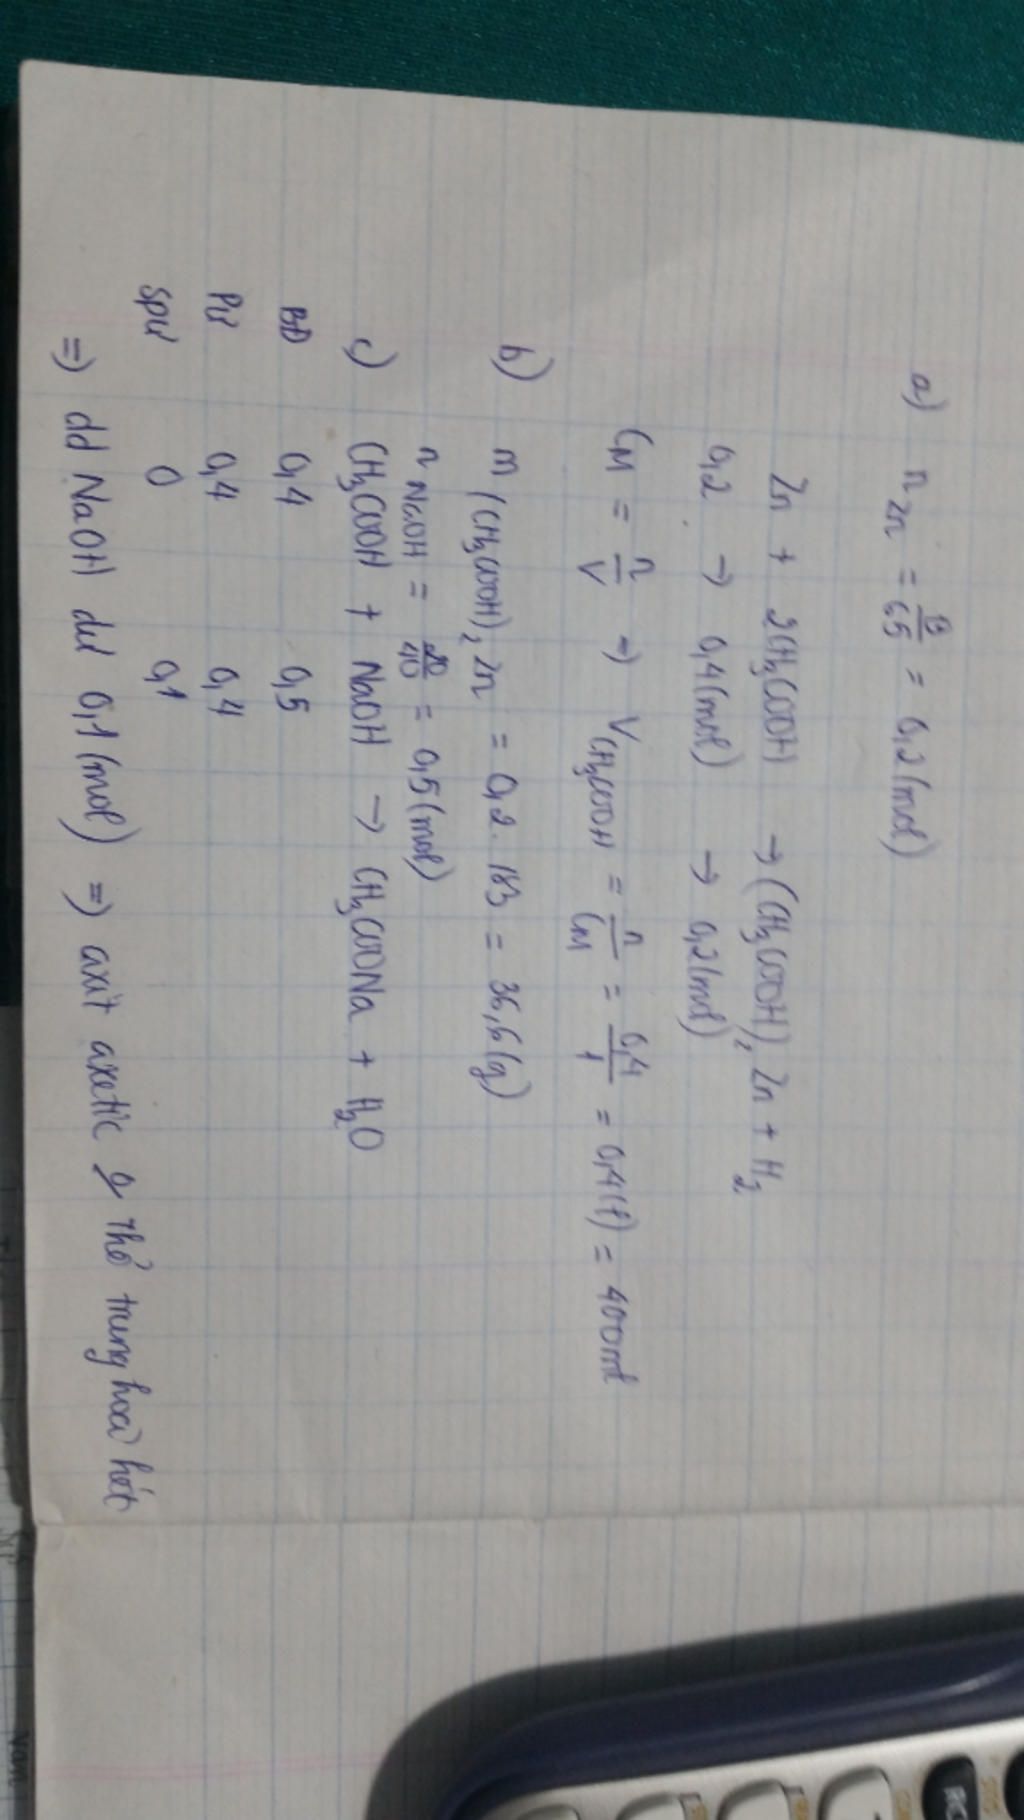 a) n Zn = 13/65 = 0,2 (mol)
Zn + 2CH3COOH → (CH3COOH)2 Zn + H2
0,2 → 0,4 (mol) → 0,2 (mol)
CM = n/V → V CH3COOH = n/CM = 0,4/1 = 0,4 (l) = 400ml
b) m (CH3COOH)2 Zn = 0,2 . 183 = 36,6 (g)
n NaOH = 20/40 = 0,5 (mol)
c) CH3COOH + NaOH → CH3COONa + H2O
BĐ 0,4 0,5
PƯ 0,4 0,4
SPƯ 0 0,1
=> dd NaOH dư 0,1 (mol) => axit axetic thể trung hoà hết